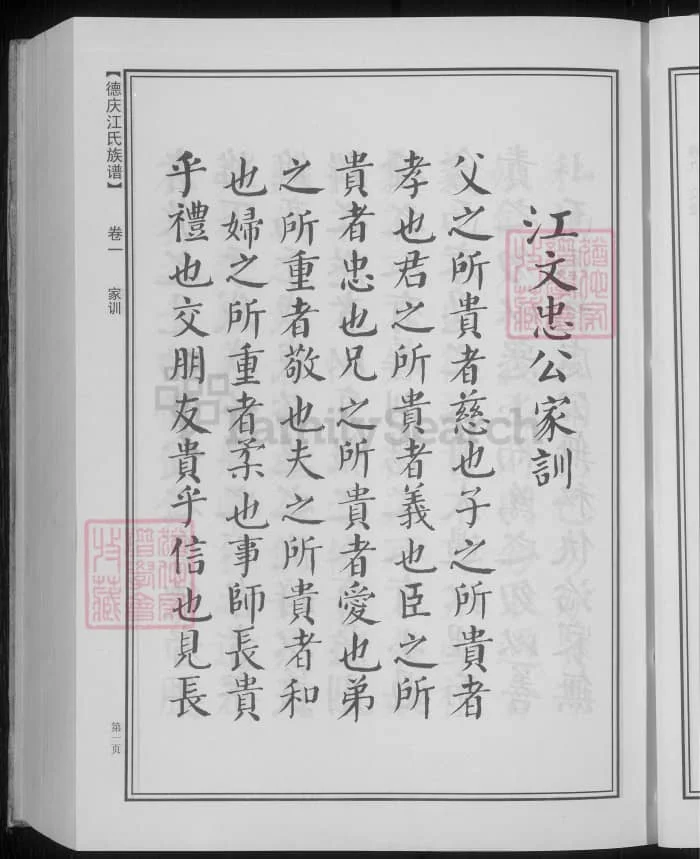 江文忠公家訓
父之所貴者慈也子之所貴者
孝也君之所貴者義也臣之所
貴者忠也兄之所貴者愛也弟
之所重者敬也夫之所貴者和
也婦之所重者柔也事師長貴
乎禮也交朋友貴乎信也見長
【德庆江氏族谱】
卷一
家训
第一页
FamilySearch